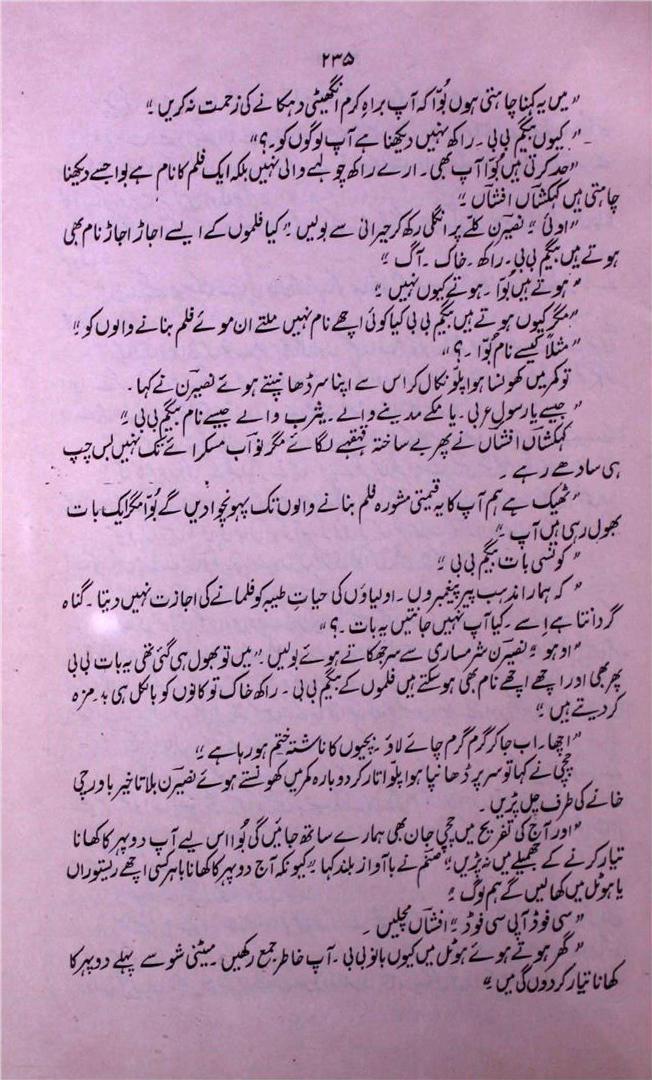 ۲۳۵
"میں یہ کہنا چاہتی ہوں بُوّا کہ آپ براہِ کرم انگھیٹی دہکانے کی زحمت نہ کریں۔"
"کیوں بیگم بی بی۔ راکھ نہیں دیکھنا ہے آپ لوگوں کو۔؟"
"حد کرتی ہیں بُوّا آپ بھی۔ ارے راکھ چولہے والی نہیں بلکہ ایک فلم کا نام ہے بوا جسے دیکھنا
چاہتی ہیں کہکشاں افشاں۔"
"اوئی" نصیرن کلّے پر انگلی رکھ کر حیرانی سے بولیں۔ "کیا فلموں کے ایسے اجاڑ اجاڑ نام بھی
ہوتے ہیں بیگم بی بی۔ راکھ۔ خاک۔ آگ"
"ہوتے ہیں بُوّا۔ ہوتے کیوں نہیں"
"مگر کیوں ہوتے ہیں بیگم بی بی کیا کوئی اچھے نام نہیں ملتے ان موئے فلم بنانے والوں کو"
"مثلاً کیسے نام بُوّا۔؟"
تو کمر میں کھونسا ہوا پلّو نکال کر اس سے اپنا سر ڈھانپتے ہوئے نصیرن نے کہا۔
"جیسے یا رسولِ عربی۔ یا مکے مدینے والے۔ یثرب والے جیسے نام بیگم بی بی"
کہکشاں افشاں نے پھر بے ساختہ قہقہے لگائے مگر نواب مسکرائے تک نہیں بس چپ
ہی سادھے رہے۔
"ٹھیک ہے ہم آپ کا یہ قیمتی مشورہ فلم بنانے والوں تک پہونچوا دیں گے بُوّا مگر ایک بات
بھول رہی ہیں آپ۔"
"کونسی بات بیگم بی بی"
"کہ ہمارا مذہب پیر پیغمبروں۔ اولیاؤں کی حیاتِ طیبہ کو فلمانے کی اجازت نہیں دیتا۔ گناہ
گردانتا ہے اِسے۔ کیا آپ نہیں جانتیں یہ بات۔؟"
"اوہو" نصیرن شرمساری سے سر جھکاتے ہوئے بولیں۔ "میں تو بھول ہی گئی تھی یہ بات بی بی
پھر بھی اور اچھے اچھے نام بھی ہو سکتے ہیں فلموں کے بیگم بی بی۔ راکھ خاک تو کانوں کو بالکل ہی بدمزہ
کر دیتے ہیں۔"
"اچھا۔ اب جا کر گرم گرم چائے لاؤ۔ بچیوں کا ناشتہ ختم ہو رہا ہے"
چچی نے کہا تو سر پر ڈھانپا ہوا پلّو اتار کر دوبارہ کمر میں کھونستے ہوئے نصیرن بلا تاخیر باورچی
خانے کی طرف چل پڑیں۔
"اور آج کی تفریح میں چچی جان بھی ہمارے ساتھ جائیں گی بُوا اس لیے آپ دوپہر کا کھانا
تیار کرنے کے جھمیلے میں نہ پڑیں" صنم نے باآواز بلند کہا "کیونکہ آج دوپہر کا کھانا باہر کسی اچھے ریستوراں
یا ہوٹل میں کھالیں گے ہم لوگ"
"سی فوڈ آپی سی فوڈ" افشاں مچلیں۔
"گھر ہوتے ہوئے ہوٹل میں کیوں بانو بی بی۔ آپ خاطر جمع رکھیں۔ میٹنی شو سے پہلے دوپہر کا
کھانا تیار کر دوں گی میں"